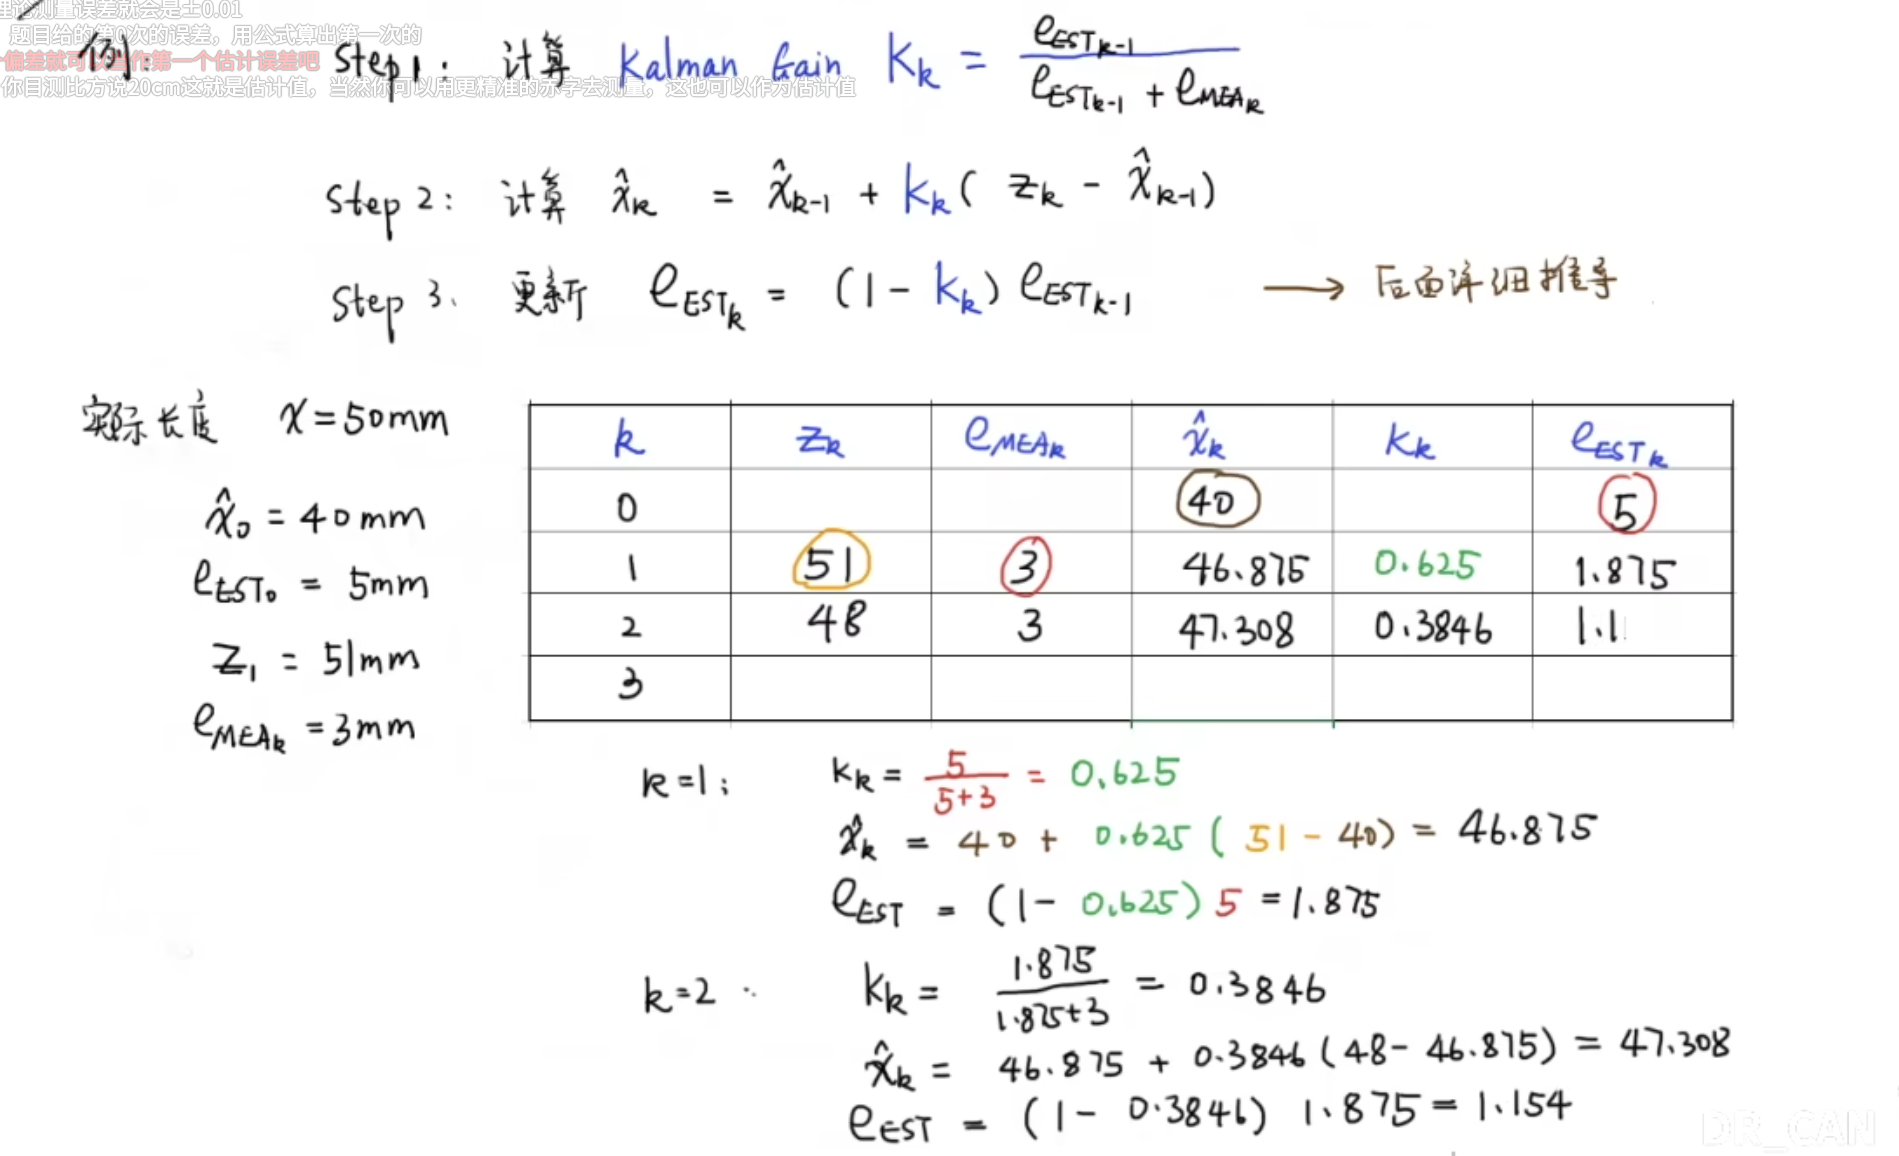 理论测量误差就会是±0.01
题目给的第0次的误差，用公式算出第一次的
偏差就可以当作第一个估计误差吧
你目测比方说20cm这就是估计值，当然你可以用更精准的赤字去测量，这也可以作为估计值
例：
Step1: 计算 Kalman Gain K_k = e_EST_k-1 / (e_EST_k-1 + e_MEA_k)
Step 2: 计算 x̂_k = x̂_k-1 + K_k ( z_k - x̂_k-1)
Step 3. 更新 e_EST_k = (1 - K_k) e_EST_k-1 → 后面详细推导
实际长度 x = 50mm
x̂_0 = 40mm
e_EST_0 = 5mm
z_1 = 51mm
e_MEA_k = 3mm
k z_k e_MEA_k x̂_k K_k e_EST_k
0 40 5
1 51 3 46.875 0.625 1.875
2 48 3 47.308 0.3846 1.1
3
k=1: K_k = 5 / (5+3) = 0.625
x̂_k = 40 + 0.625 ( 51 - 40) = 46.875
e_EST = (1 - 0.625) 5 = 1.875
k=2 : K_k = 1.875 / (1.875+3) = 0.3846
x̂_k = 46.875 + 0.3846 (48 - 46.875) = 47.308
e_EST = (1 - 0.3846) 1.875 = 1.154
DR_CAN